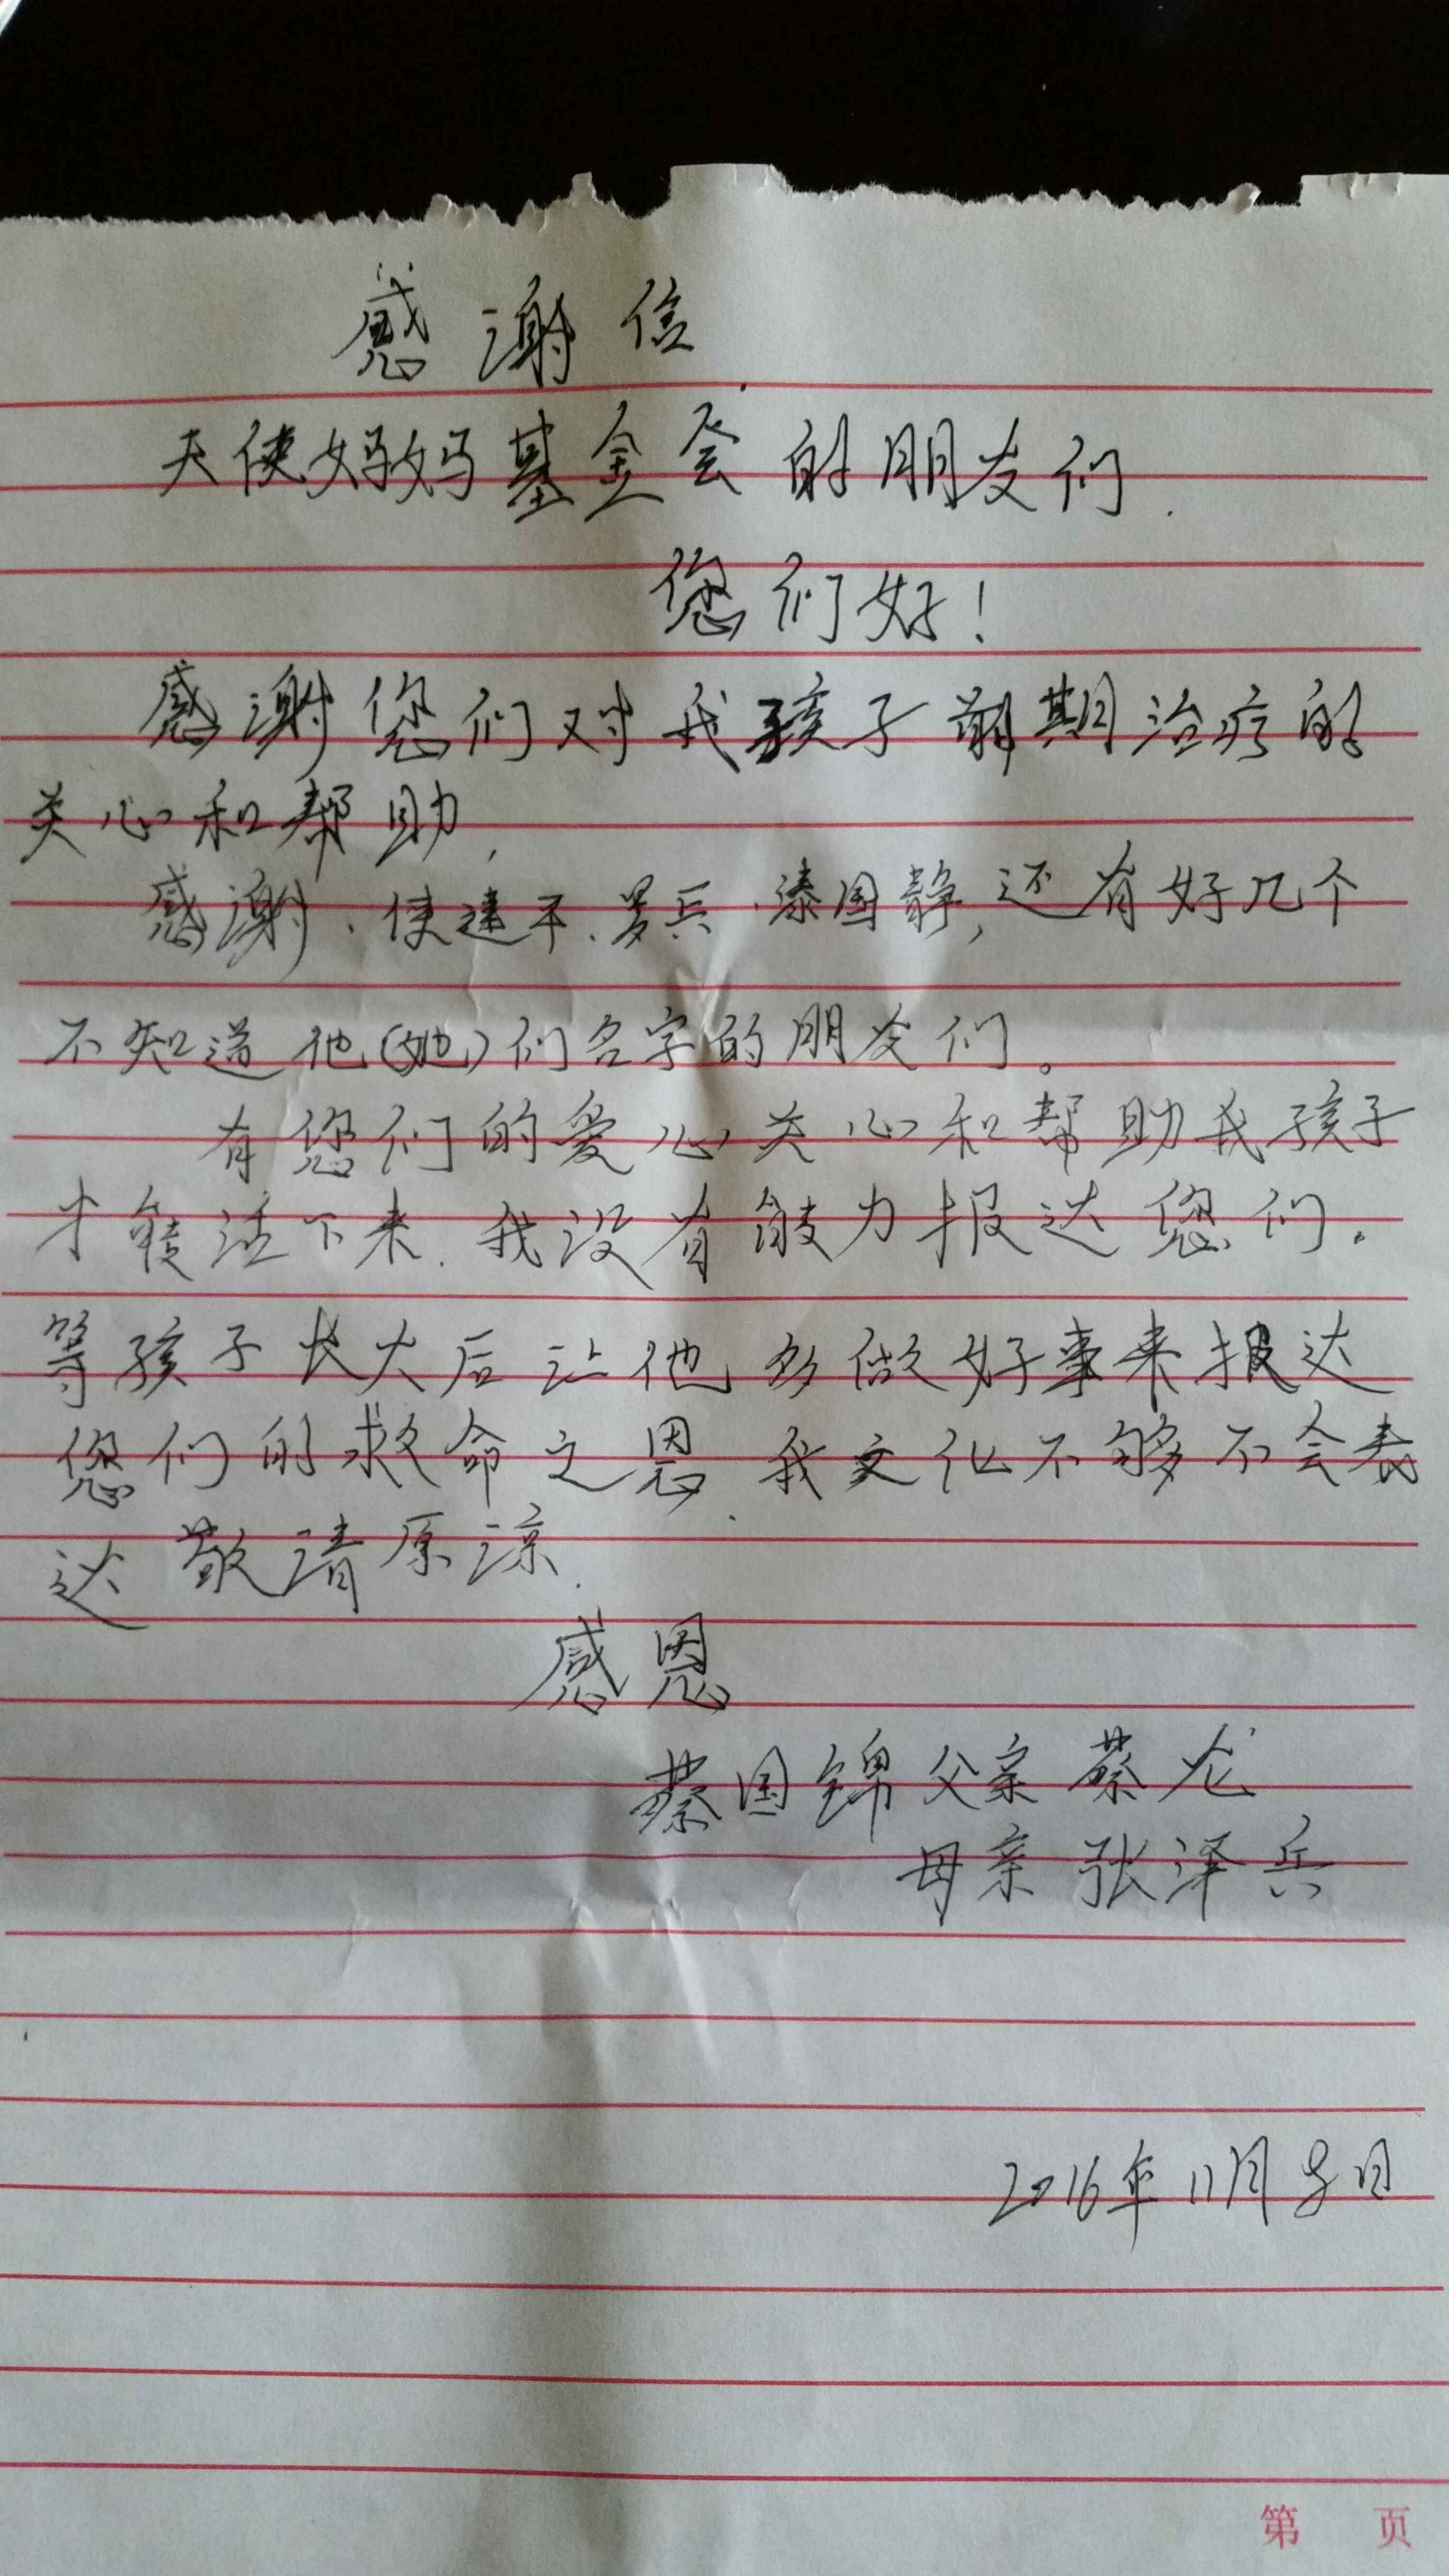 感谢信
天使妈妈基金会的朋友们.
您们好!
感谢您们对我孩子前期治疗的
关心和帮助,
感谢、使建平、罗兵、秦国静,还有好几个
不知道他(她)们名字的朋友们。
有您们的爱心关心和帮助我孩子
才能活下来.我没有能力报达您们.
等孩子长大后让他多做好事来报达
您们的救命之恩.我文化不够不会表
达敬请原谅.
感恩
蔡国锦父亲蔡龙
母亲张泽兵
2016年11月8日
第 页